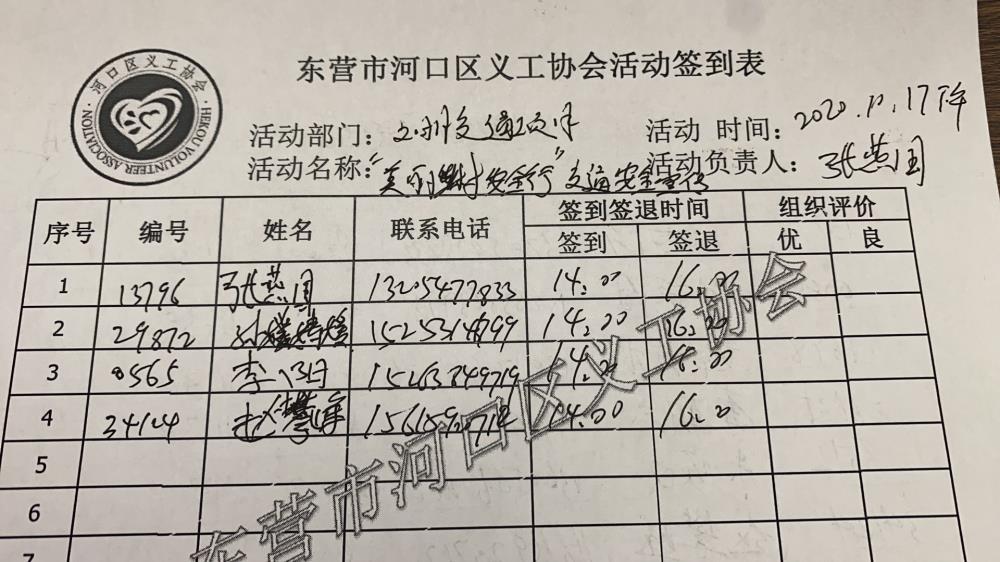 东营市河口区义工协会活动签到表
河口区义工协会
HEKOU VOLUNTEER ASSOCIATION
活动部门: 交通
活动 时间: 2020.11.17下午
活动名称: "美丽乡村安全行"交通安全宣传
活动负责人: 张燕国
序号 编号 姓名 联系电话 签到签退时间 组织评价
签到 签退 优 良
1 13796 张燕国 13205477833 14:00 16:00
2 29872 14:00 16:00
3 8565 李 14:00 16:00
4 34104 赵 14:00 16:00
5
6
7
东营市河口区义工协会